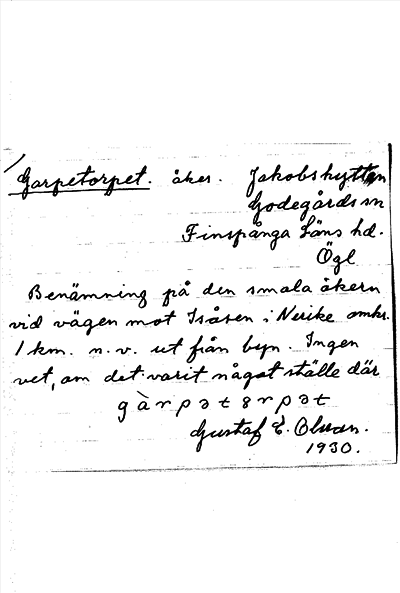 Garpetorpet. åker. Jakobshyttan
Godegårds sn
Finspånga Läns hd.
Ögl
Benämning på den smala åkern
vid vägen mot Isåsen i Nerike omkr.
1 km. n.v. ut från byn. Ingen
vet, om det varit något ställe där
gàrpətərpət
Gustaf E. Olsson.
1930.